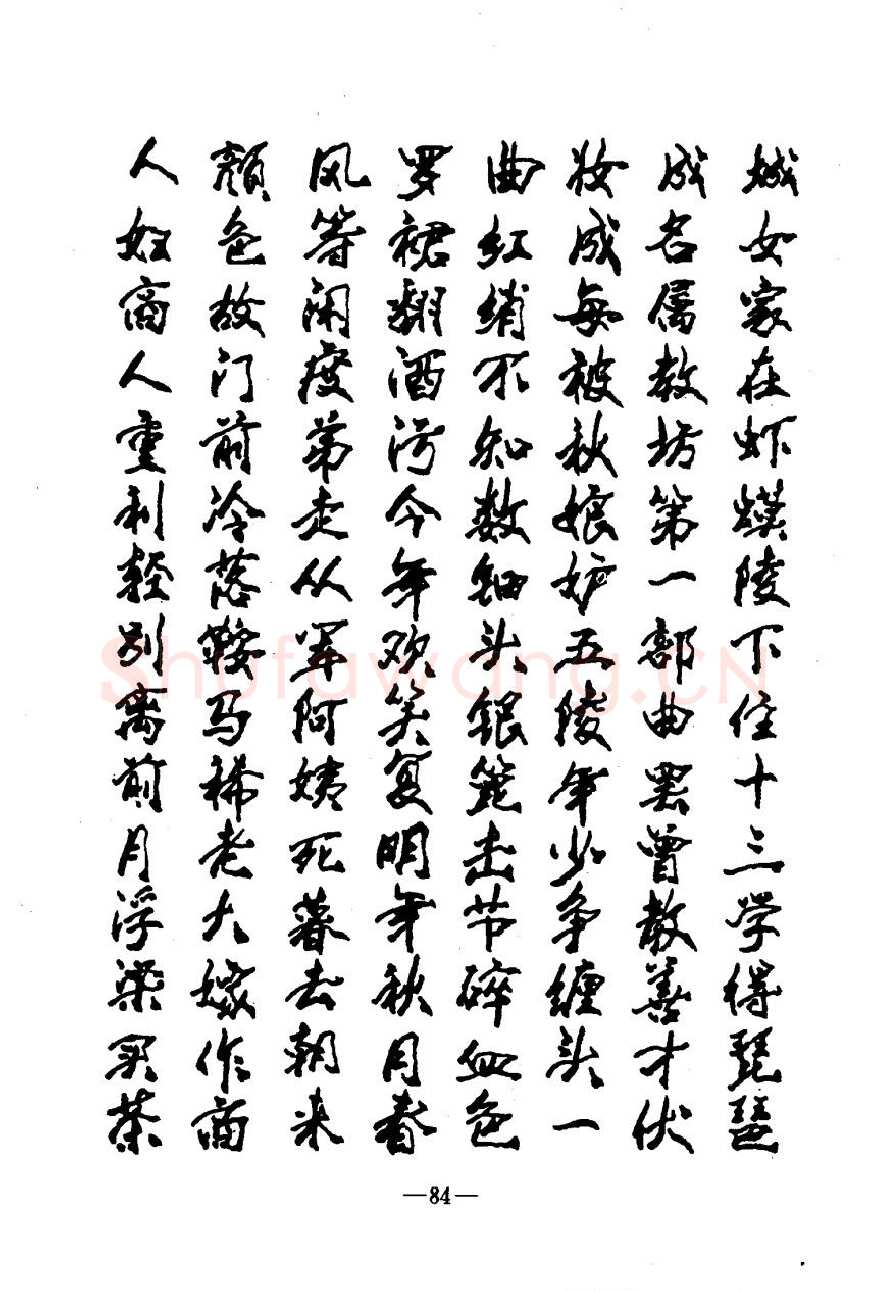 城女家在虾蟆陵下住十三学得琵琶
成名属教坊第一部曲罢曾教善才伏
妆成每被秋娘妒五陵年少争缠头一
曲红绡不知数钿头银篦击节碎血色
罗裙翻酒污今年欢笑复明年秋月春
风等闲度弟走从军阿姨死暮去朝来
颜色故门前冷落鞍马稀老大嫁作商
人妇商人重利轻别离前月浮梁买茶
—84—
Shufawang.CN